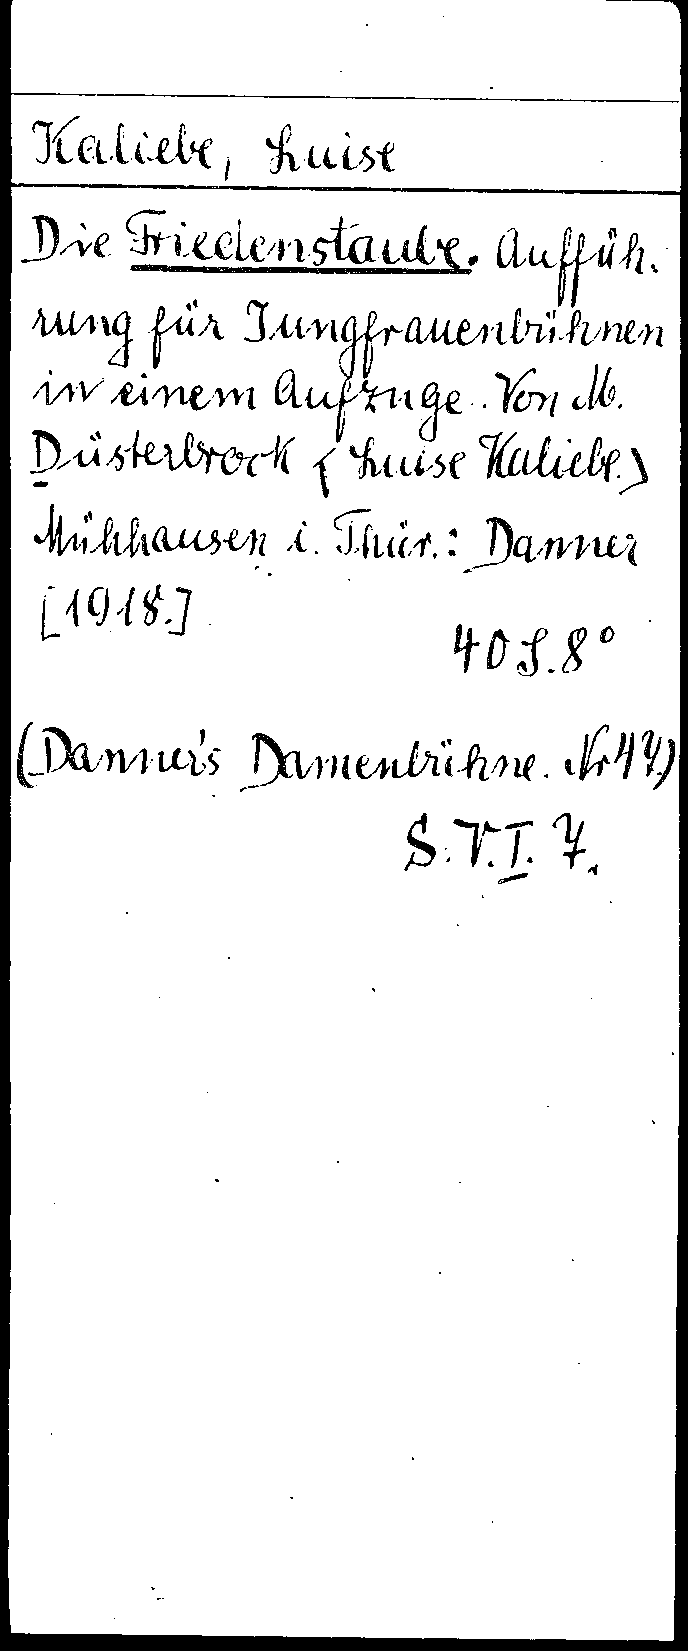 Kaliebe, Luise
Die Friedenstaube. Auffüh-
rung für Jungfrauenbühnen
in einem Aufzuge. Von M.
Düsterbrock (Luise Kaliebe.)
Mühlhausen i. Thür.: Danner
[1918.]
40 S. 8°
(Danner's Damenbühne. Nr 47.)
S. V. I. 7.